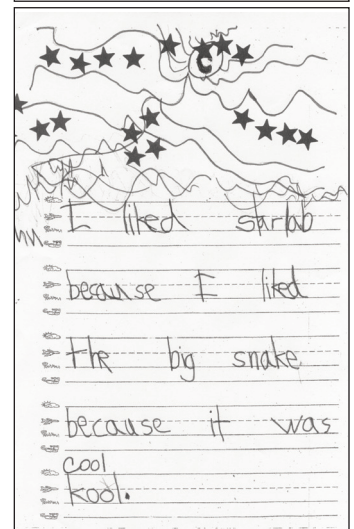 C
I liked sarlab
because I liked
the big snake
because it was
cool
kool.